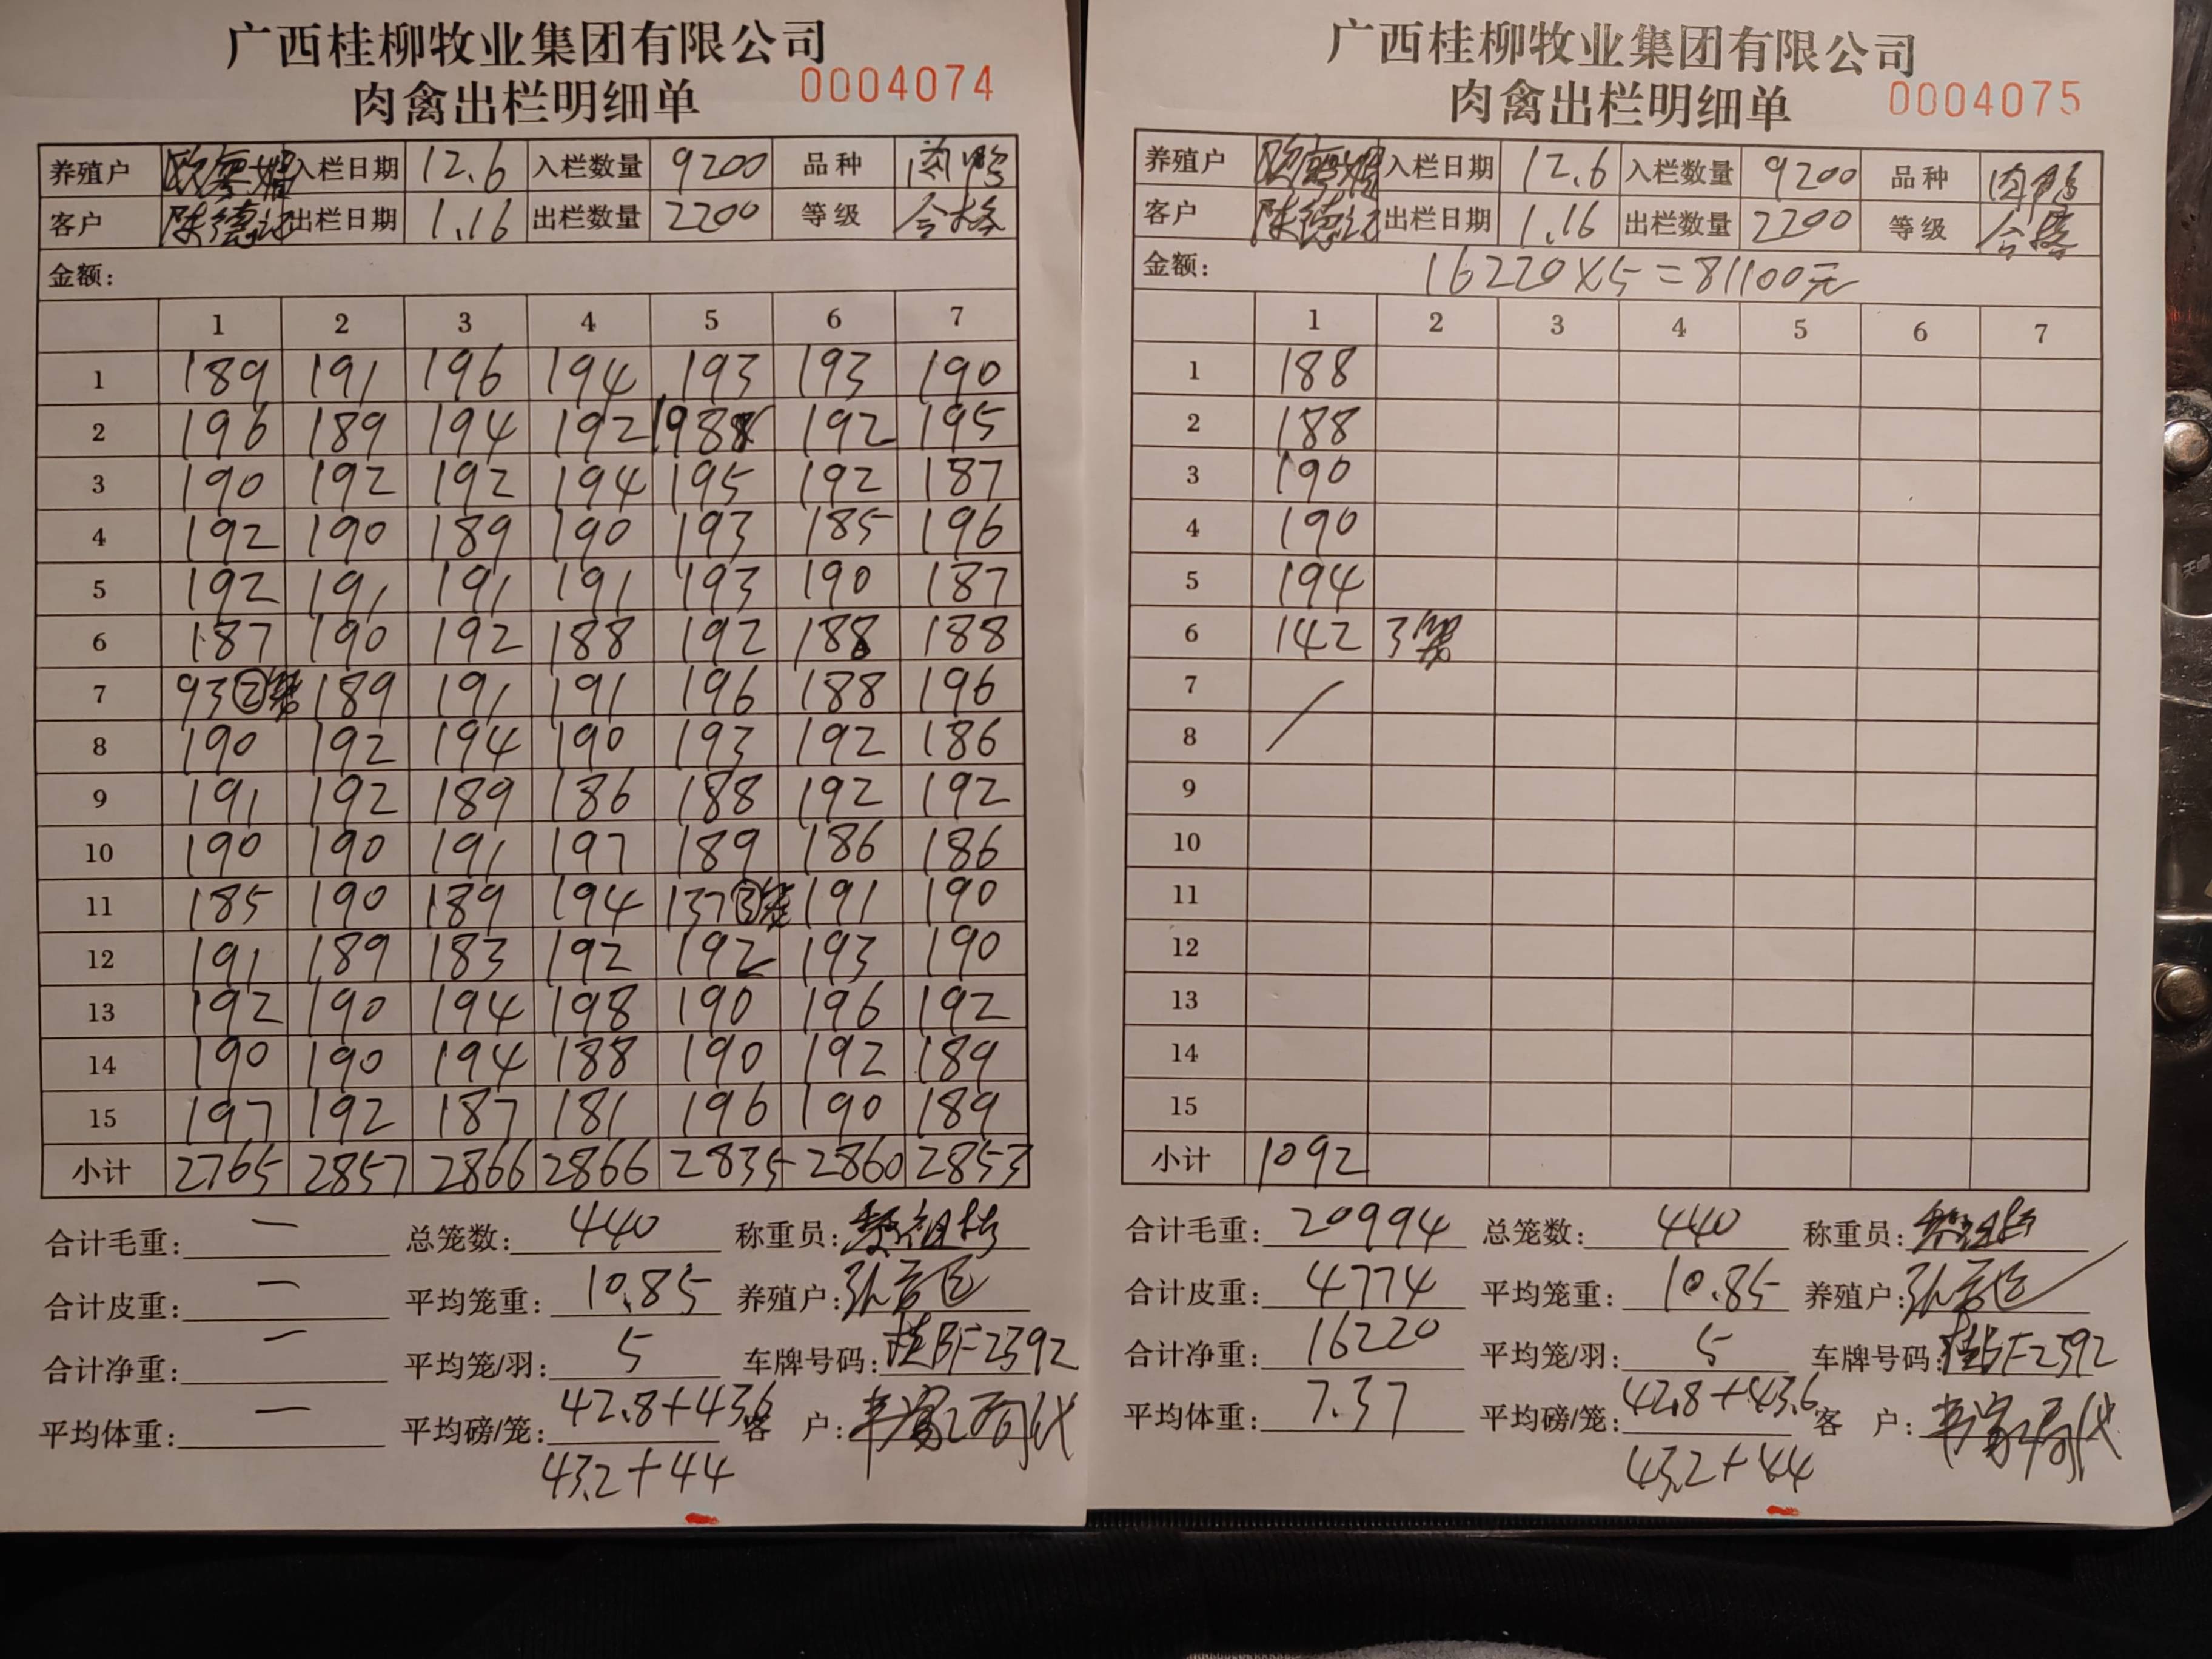 广西桂柳牧业集团有限公司
肉禽出栏明细单 0004074
养殖户 入栏日期 12.6 入栏数量 9200 品种 肉鸭
客户 陈德 出栏日期 1.16 出栏数量 2200 等级 合格
金额:
1 2 3 4 5 6 7
1 189 191 196 194 193 193 190
2 196 189 194 192 198 192 195
3 190 192 192 194 195 192 187
4 192 190 189 190 193 185 196
5 192 191 191 191 193 190 187
6 187 190 192 188 192 188 188
7 93②笼 189 191 191 196 188 196
8 190 192 194 190 193 192 186
9 191 192 189 186 188 192 192
10 190 190 191 197 189 186 186
11 185 190 189 194 137③笼 191 190
12 191 189 183 192 192 193 190
13 192 190 194 198 190 196 192
14 190 190 194 188 190 192 189
15 197 192 187 181 196 190 189
小计 2765 2857 2866 2866 2835 2860 2853
合计毛重: — 总笼数: 440 称重员:
合计皮重: — 平均笼重: 10.85 养殖户:
合计净重: — 平均笼/羽: 5 车牌号码: 桂BF2392
平均体重: — 平均磅/笼: 42.8+43.6 客 户:
43.2+44
广西桂柳牧业集团有限公司
肉禽出栏明细单 0004075
养殖户 入栏日期 12.6 入栏数量 9200 品种 肉鸭
客户 陈德 出栏日期 1.16 出栏数量 2200 等级 合格
金额: 16220×5=81100元
1 2 3 4 5 6 7
1 188
2 188
3 190
4 190
5 194
6 142 3笼
7
8
9
10
11
12
13
14
15
小计 1092
合计毛重: 20994 总笼数: 440 称重员:
合计皮重: 4774 平均笼重: 10.85 养殖户:
合计净重: 16220 平均笼/羽: 5 车牌号码: 桂BF2392
平均体重: 7.37 平均磅/笼: 42.8+43.6 客 户:
43.2+44